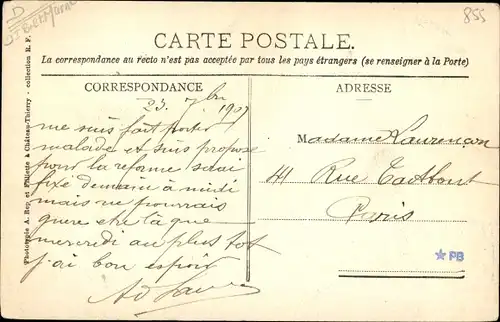 855
CARTE POSTALE.
La correspondance au recto n'est pas acceptée par tous les pays étrangers (se renseigner à la Poste)
CORRESPONDANCE
ADRESSE
23 7bre 1907
me suis fait porter
malade et suis proposé
pour la reforme serai
fixé demain à midi
mais ne pourrais
guere etre là que
mercredi au plus tot
j'ai bon espoir
Madame Laurençon
41 Rue Taitbout
Paris
PB
Phototypie A. Rep et Filliette à Château-Thierry - collection R. F.